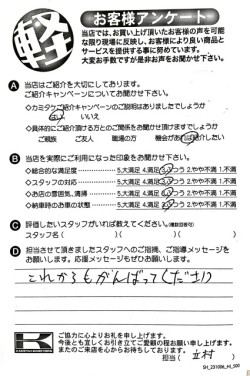 軽
お客様アンケート
当店では、お買い上げ頂いたお客様の声を可能
な限り現場に反映し、お客様により良い商品と
サービスを提供する事に努めています。
大変お手数ですが是非お声をお聞かせ下さい。
A 当店はご紹介を大切にしております。
ご紹介キャンペーンについてお聞かせ下さい。
◇カミタケご紹介キャンペーンのご説明はありましたでしょうか
はい いいえ
◇具体的にご紹介頂ける方とのご関係をお聞かせ頂けますでしょうか
ご親族 ご友人 職場の方 機会があれば紹介したい
B 当店を実際にご利用なった印象をお聞かせ下さい。
◇総合的な満足度 5.大満足 4.満足 3.ふつう 2.やや不満 1.不満
◇スタッフの対応 5.大満足 4.満足 3.ふつう 2.やや不満 1.不満
◇お店の雰囲気、清掃 5.大満足 4.満足 3.ふつう 2.やや不満 1.不満
◇納車時のお車の状態 5.大満足 4.満足 3.ふつう 2.やや不満 1.不満
C 評価したいスタッフがいれば教えてください。(複数回答可)
スタッフ名( )( )( )
D 担当させて頂きましたスタッフへのご指摘、ご指導メッセージを
お願いします。応援メッセージもぜひお願いします。
これからもがんばってください
K
ご協力に心よりお礼を申し上げます。
今後とも宜しくお引き立てご愛顧の程お願い申し上げます。
またのご来店を心からお待ちしております。
担当( 立村 )
SH_231006_HI_500